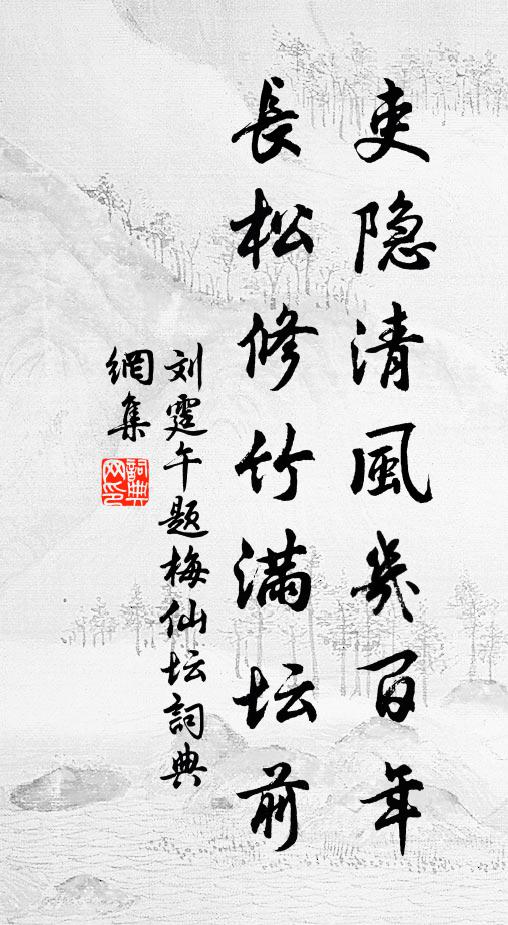 吏隐清風幾百年
長松修竹滿坛前
刘霆午題梅仙坛詞典
網集
詞典
网印